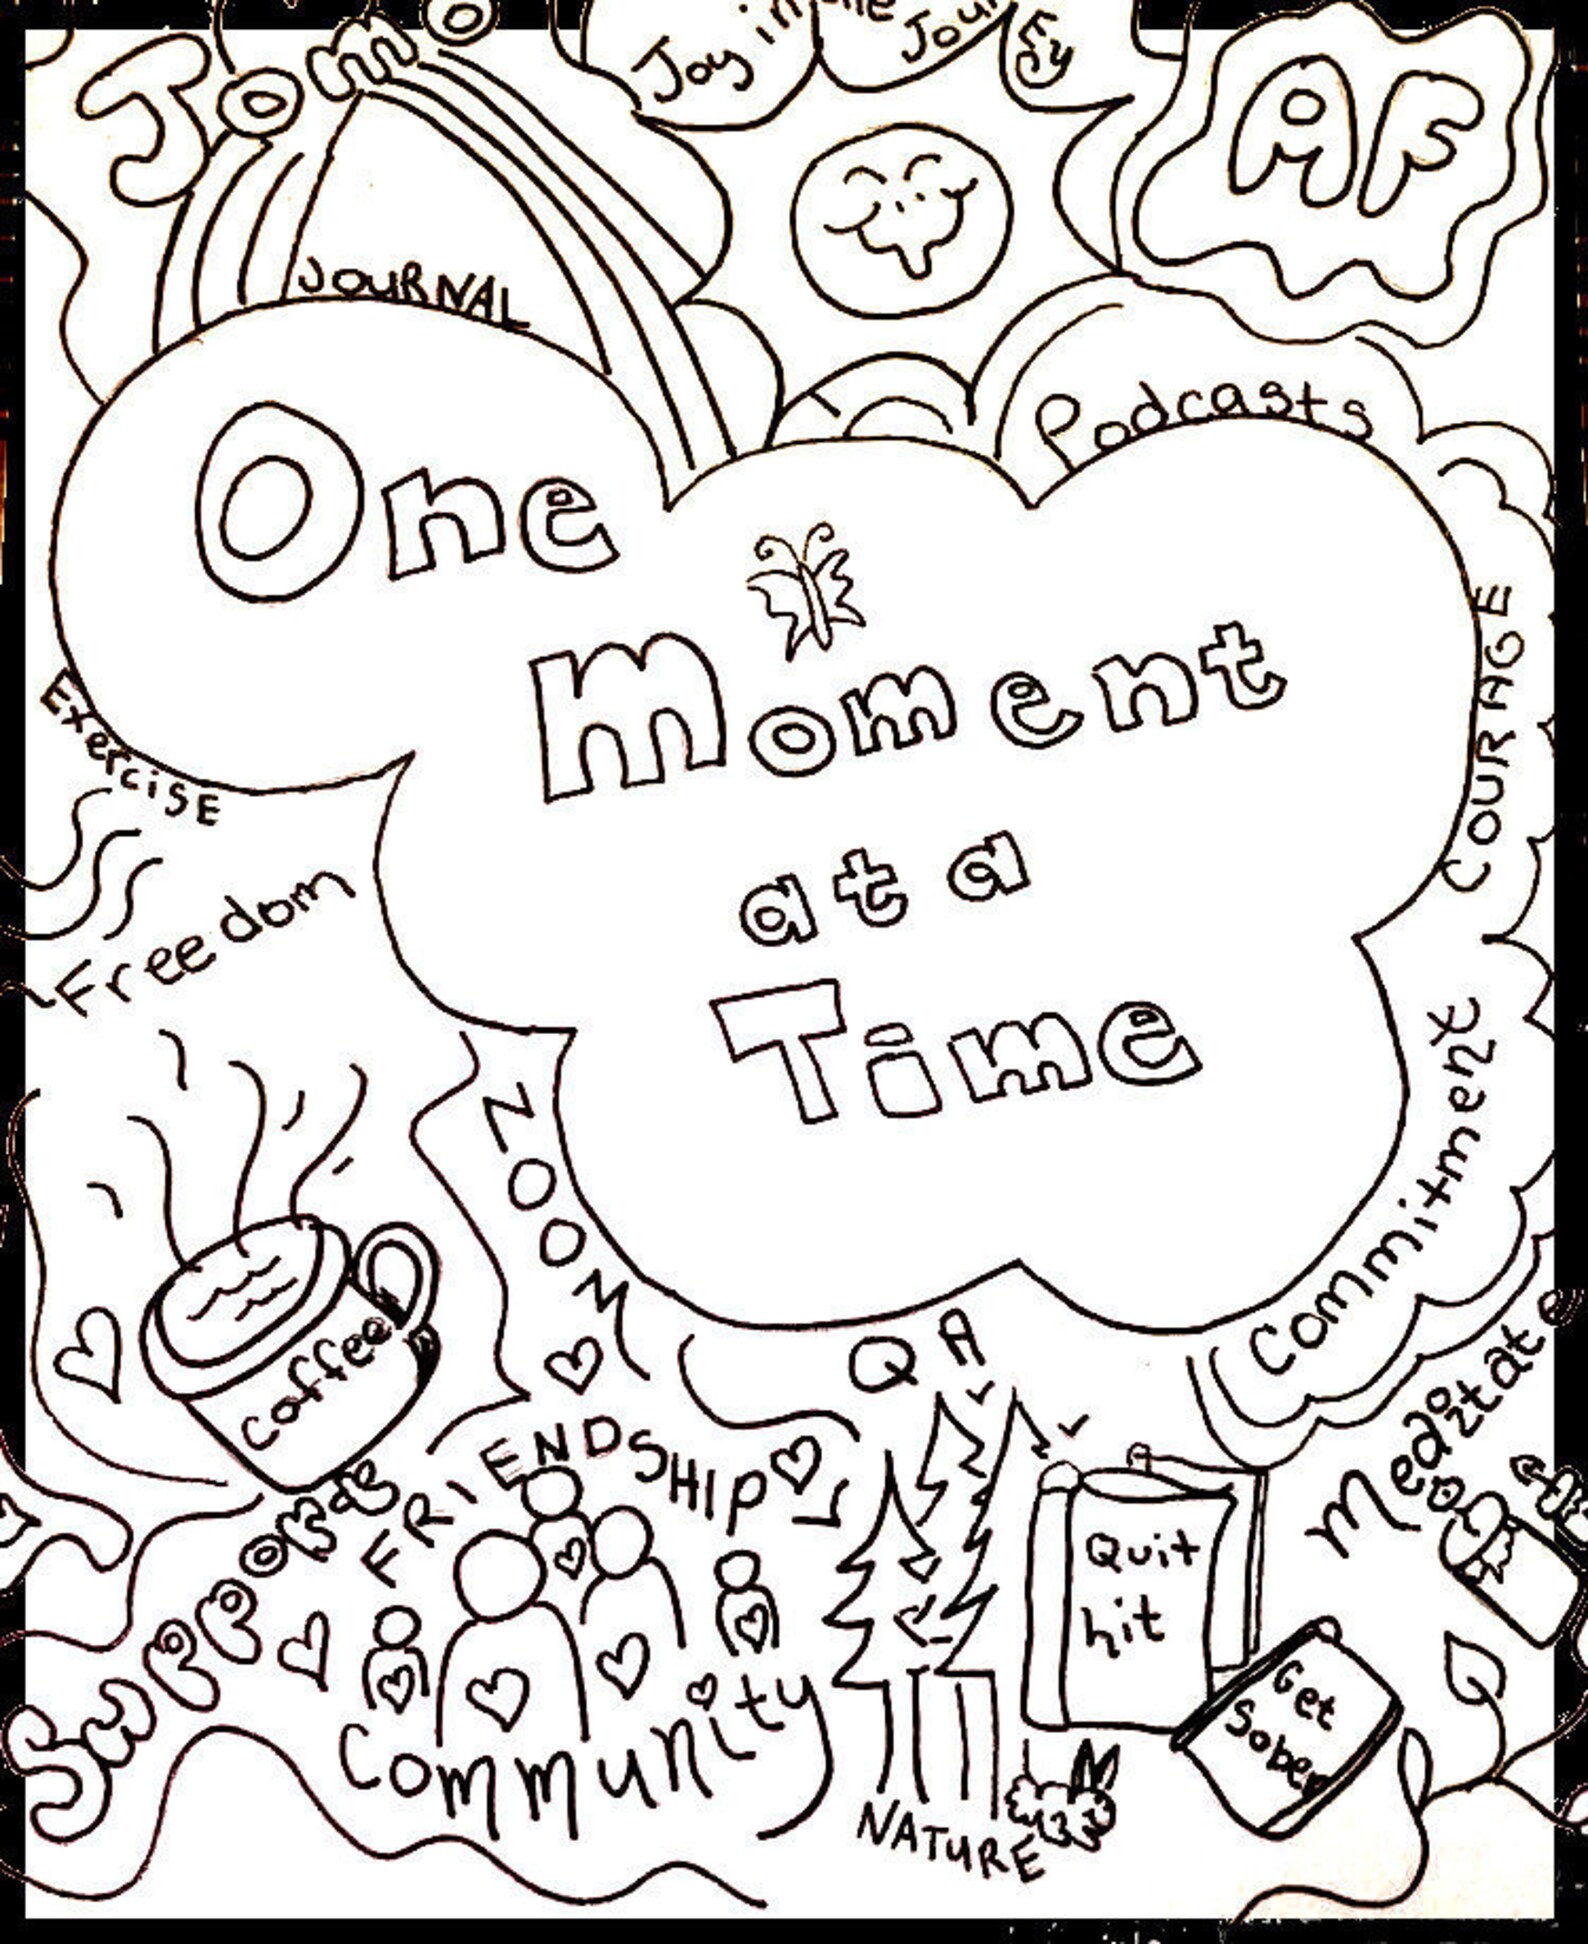 Jomo
Joy in the Jour
Ey
AF
JOURNAL
Podcasts
One
Moment
at a
Time
COURAGE
Exercise
Freedom
Commitment
ZOOM
QA
Meditate
coffee
FRIENDSHIP
Quit
hit
Get
Sober
Community
NATURE